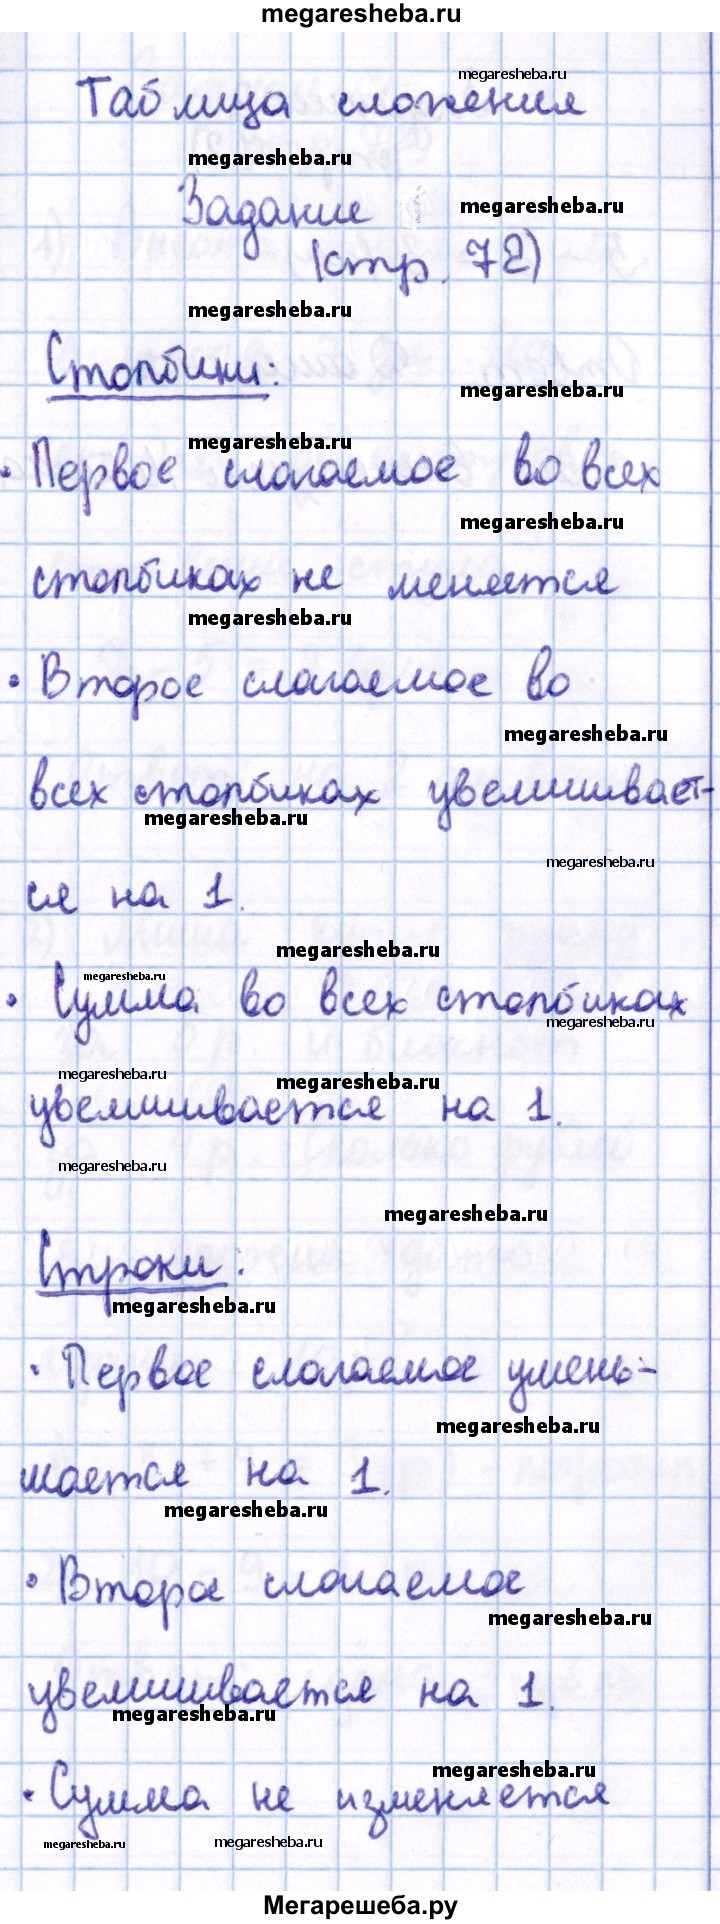 megaresheba.ru
megaresheba.ru
Таблица сложения
megaresheba.ru
Задание
megaresheba.ru
(стр. 72)
megaresheba.ru
Столбики:
megaresheba.ru
megaresheba.ru
• Первое слагаемое во всех
megaresheba.ru
столбиках не меняется
megaresheba.ru
• Второе слагаемое во
megaresheba.ru
всех столбиках увеличивает-
megaresheba.ru
megaresheba.ru
ся на 1.
megaresheba.ru
megaresheba.ru
• Сумма во всех столбиках
megaresheba.ru
megaresheba.ru
megaresheba.ru
увеличивается на 1.
megaresheba.ru
megaresheba.ru
Строки:
megaresheba.ru
• Первое слагаемое умень-
megaresheba.ru
шается на 1.
megaresheba.ru
• Второе слагаемое
megaresheba.ru
увеличивается на 1.
megaresheba.ru
megaresheba.ru
• Сумма не изменяется
megaresheba.ru
megaresheba.ru
Мегарешеба.ру